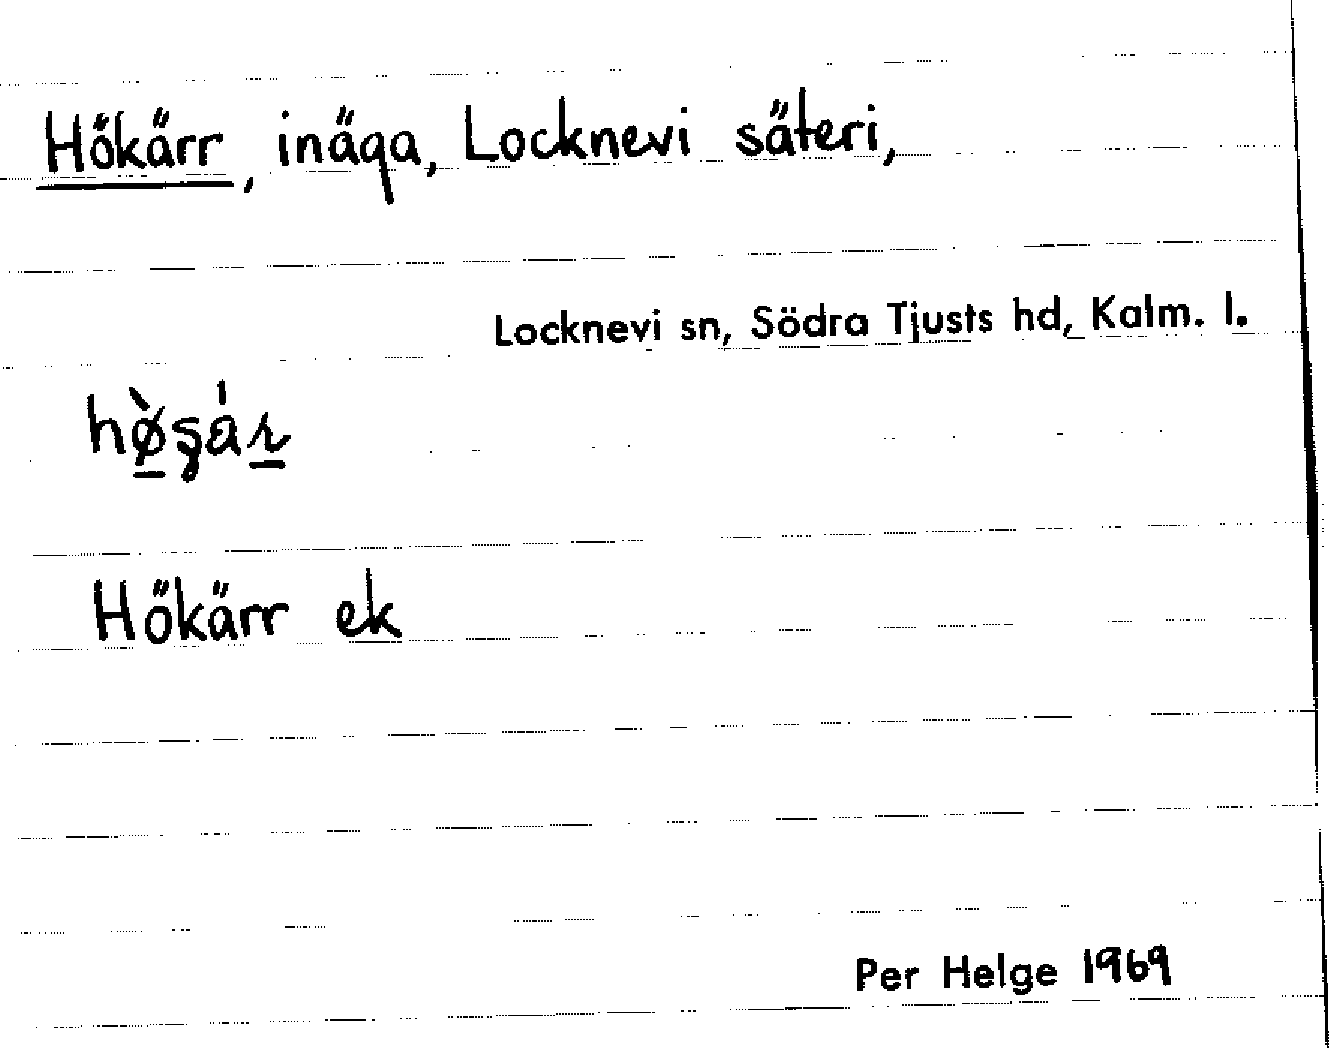 Hökärr, inäga, Locknevi säteri,
Locknevi sn, Södra Tjusts hd, Kalm. l.
Hökärr ek
Per Helge 1969